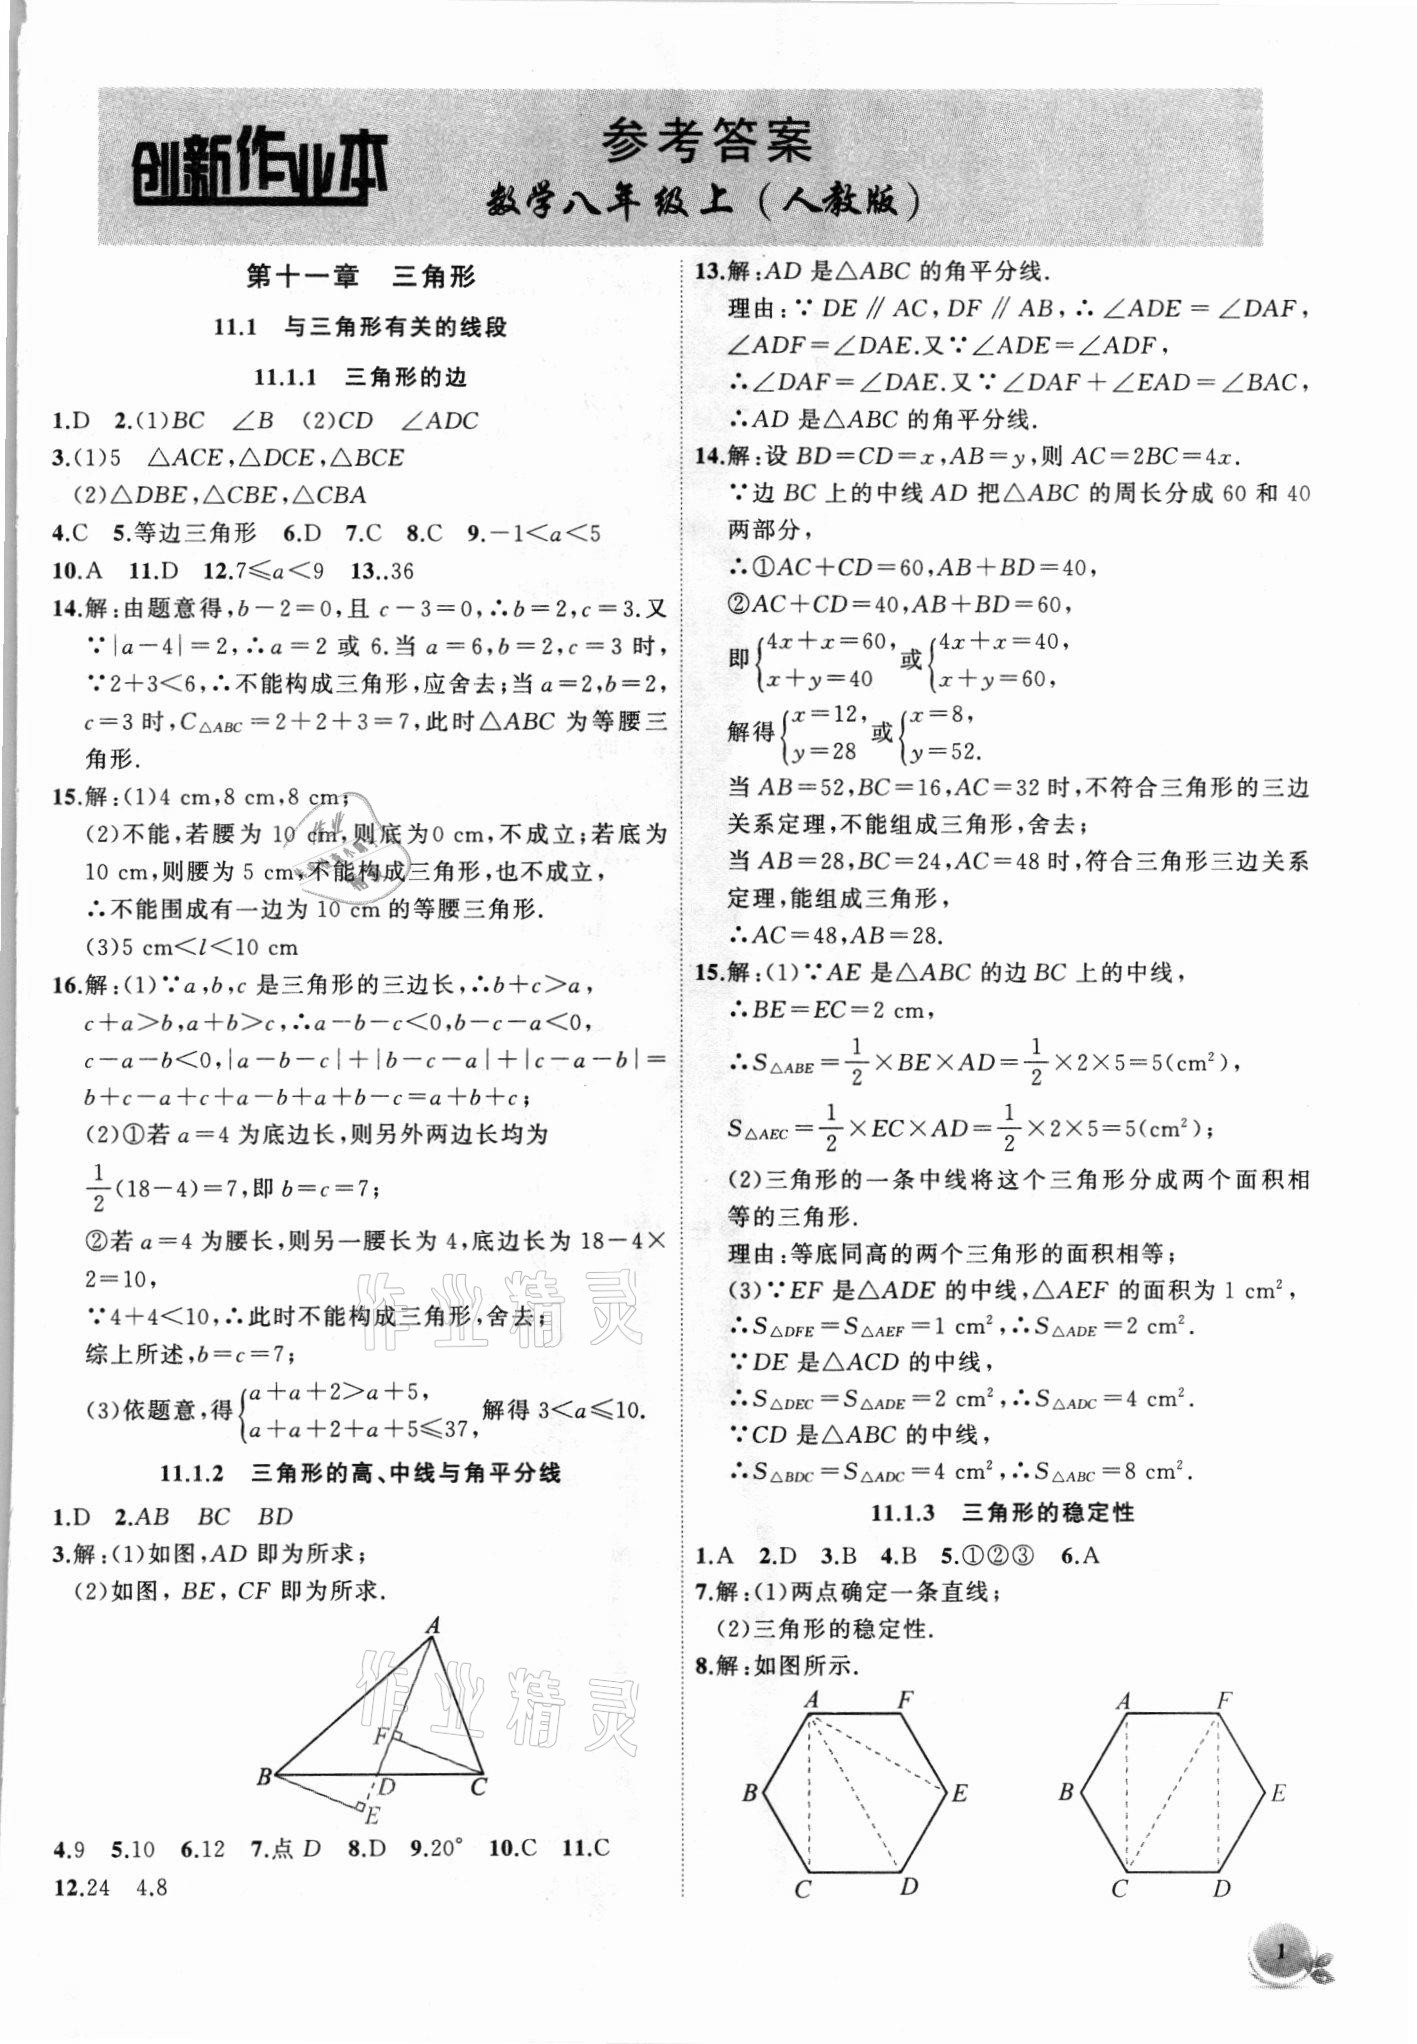 创新作业本
参考答案
数学八年级上(人教版)
第十一章 三角形
11.1 与三角形有关的线段
11.1.1 三角形的边
1.D 2.(1)BC ∠B (2)CD ∠ADC
3.(1)5 △ACE,△DCE,△BCE
(2)△DBE,△CBE,△CBA
4.C 5.等边三角形 6.D 7.C 8.C 9.-1<a<5
10.A 11.D 12.7≤a<9 13..36
14.解:由题意得,b-2=0,且c-3=0,∴b=2,c=3.又
∵|a-4|=2,∴a=2或6.当a=6,b=2,c=3时,
∵2+3<6,∴不能构成三角形,应舍去;当a=2,b=2,
c=3时,C△ABC=2+2+3=7,此时△ABC为等腰三
角形.
15.解:(1)4 cm,8 cm,8 cm;
(2)不能,若腰为10 cm,则底为0 cm,不成立;若底为
10 cm,则腰为5 cm,不能构成三角形,也不成立,
∴不能围成有一边为10 cm的等腰三角形.
(3)5 cm<l<10 cm
16.解:(1)∵a,b,c是三角形的三边长,∴b+c>a,
c+a>b,a+b>c,∴a-b-c<0,b-c-a<0,
c-a-b<0,|a-b-c|+|b-c-a|+|c-a-b|=
b+c-a+c+a-b+a+b-c=a+b+c;
(2)①若a=4为底边长,则另外两边长均为
1/2(18-4)=7,即b=c=7;
②若a=4为腰长,则另一腰长为4,底边长为18-4×
2=10,
∵4+4<10,∴此时不能构成三角形,舍去;
综上所述,b=c=7;
(3)依题意,得{a+a+2>a+5, a+a+2+a+5≤37, 解得3<a≤10.
11.1.2 三角形的高、中线与角平分线
1.D 2.AB BC BD
3.解:(1)如图,AD即为所求;
(2)如图,BE,CF即为所求.
A
F
B D C
E
4.9 5.10 6.12 7.点D 8.D 9.20° 10.C 11.C
12.24 4.8
13.解:AD是△ABC的角平分线.
理由:∵DE∥AC,DF∥AB,∴∠ADE=∠DAF,
∠ADF=∠DAE.又∵∠ADE=∠ADF,
∴∠DAF=∠DAE.又∵∠DAF+∠EAD=∠BAC,
∴AD是△ABC的角平分线.
14.解:设BD=CD=x,AB=y,则AC=2BC=4x.
∵边BC上的中线AD把△ABC的周长分成60和40
两部分,
∴①AC+CD=60,AB+BD=40,
②AC+CD=40,AB+BD=60,
即{4x+x=60, x+y=40 或{4x+x=40, x+y=60,
解得{x=12, y=28 或{x=8, y=52.
当AB=52,BC=16,AC=32时,不符合三角形的三边
关系定理,不能组成三角形,舍去;
当AB=28,BC=24,AC=48时,符合三角形三边关系
定理,能组成三角形,
∴AC=48,AB=28.
15.解:(1)∵AE是△ABC的边BC上的中线,
∴BE=EC=2 cm,
∴S△ABE=1/2×BE×AD=1/2×2×5=5(cm²),
S△AEC=1/2×EC×AD=1/2×2×5=5(cm²);
(2)三角形的一条中线将这个三角形分成两个面积相
等的三角形.
理由:等底同高的两个三角形的面积相等;
(3)∵EF是△ADE的中线,△AEF的面积为1 cm²,
∴S△DFE=S△AEF=1 cm²,∴S△ADE=2 cm².
∵DE是△ACD的中线,
∴S△DEC=S△ADE=2 cm²,∴S△ADC=4 cm².
∵CD是△ABC的中线,
∴S△BDC=S△ADC=4 cm²,∴S△ABC=8 cm².
11.1.3 三角形的稳定性
1.A 2.D 3.B 4.B 5.①②③ 6.A
7.解:(1)两点确定一条直线;
(2)三角形的稳定性.
8.解:如图所示.
A F A F
B E B E
C D C D
作业精灵
作业精灵
1